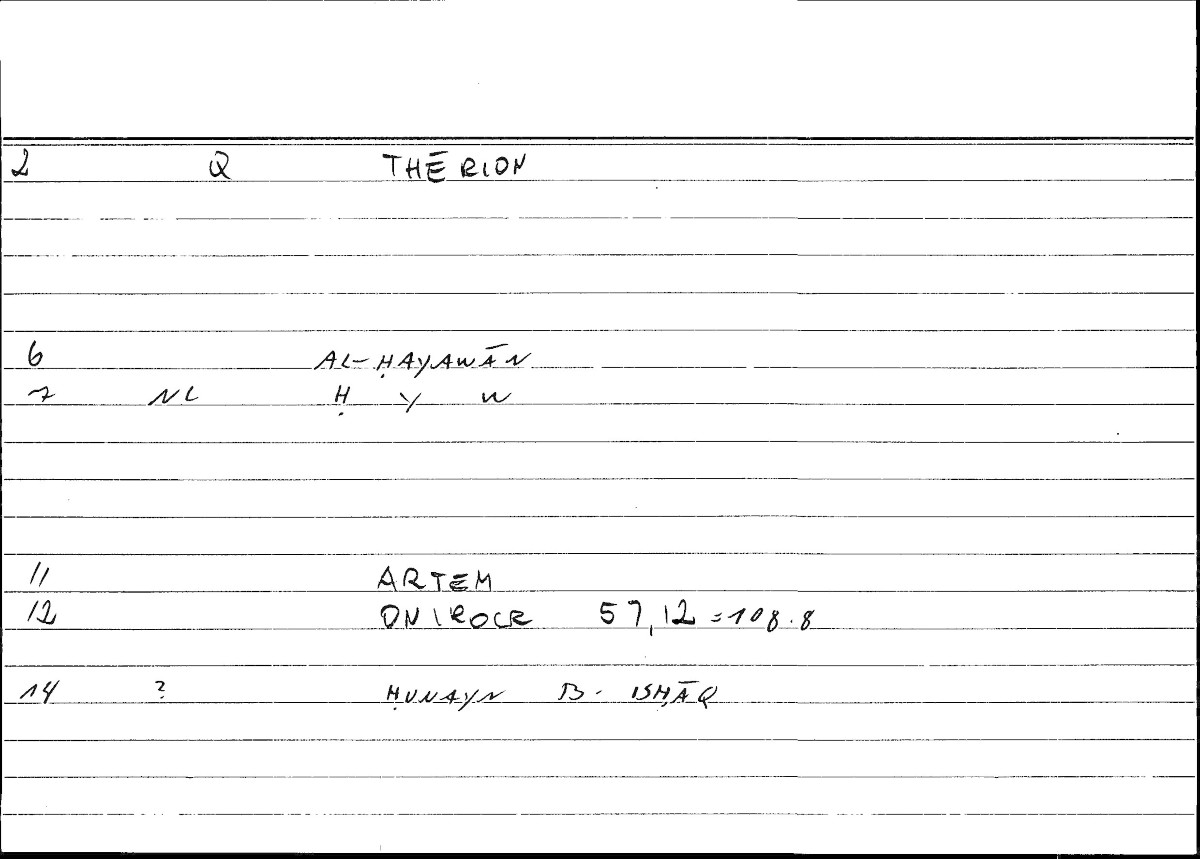 2 Q THĒRION
6 AL-ḤAYAWĀN
7 NL Ḥ Y W
11 ARTEM
12 ONIROCR 57,12 = 108.8
14 ? ḤUNAYN B. ISḤĀQ